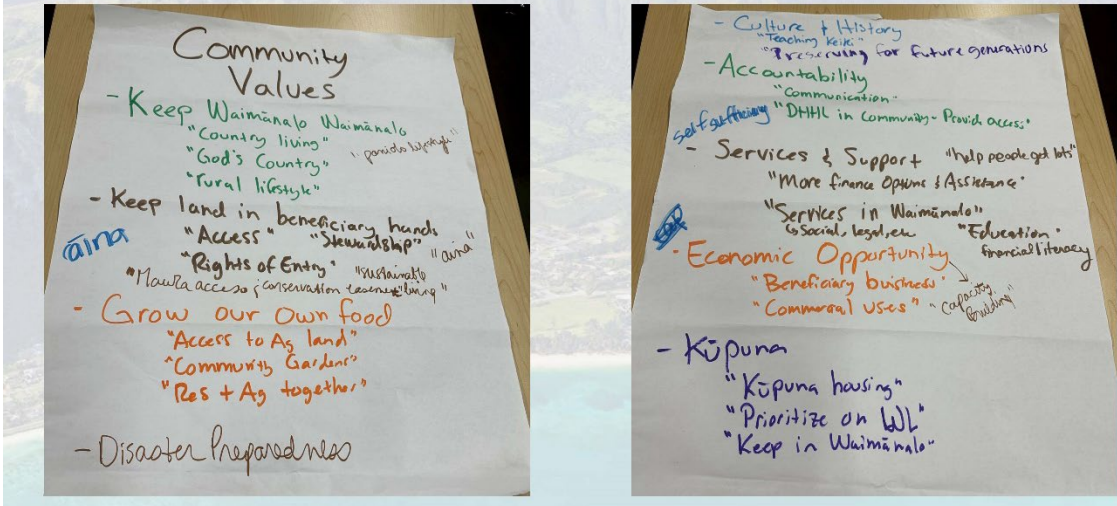 Community
Values
- Keep Waimānalo Waimānalo
"Country living"
"God's Country"
"paniolo lifestyle"
"rural lifestyle"
- Keep land in beneficiary hands
āina
"Access" "Stewardship"
"Rights of Entry" "sustainable living" "aina"
"Mauka access; conservation
- Grow our own food
"Access to Ag land"
"Community Gardens"
"Res + Ag together"
- Disaster Preparedness
- Culture & History
"Teaching Keiki"
"Preserving for future generations
- Accountability
"Communication"
"DHHL in community - Provide access"
self sufficiency
- Services & Support "help people get lots"
"More finance Options & Assistance"
"Services in Waimānalo"
↳ Social, legal, etc
"Education"
financial literacy
- Economic Opportunity
"Beneficiary buisness"
"Commercial uses"
"capacity Building"
- Kūpuna
"Kūpuna housing"
"Prioritize on WL"
"Keep in Waimānalo"